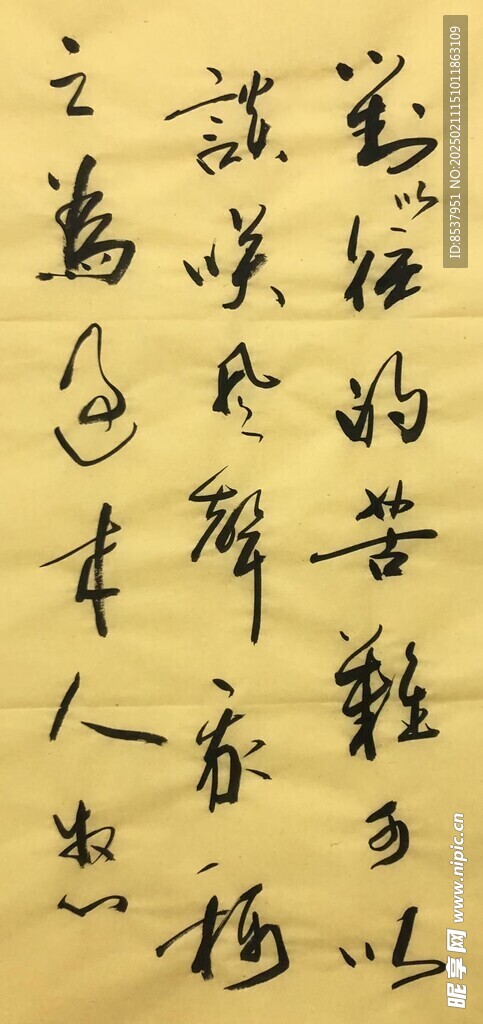 對以徃的苦難可以
談咲風聲我稱
之為過来人牧心
ID:8537951 NO:20250211151011863109
昵享网 www.nipic.cn